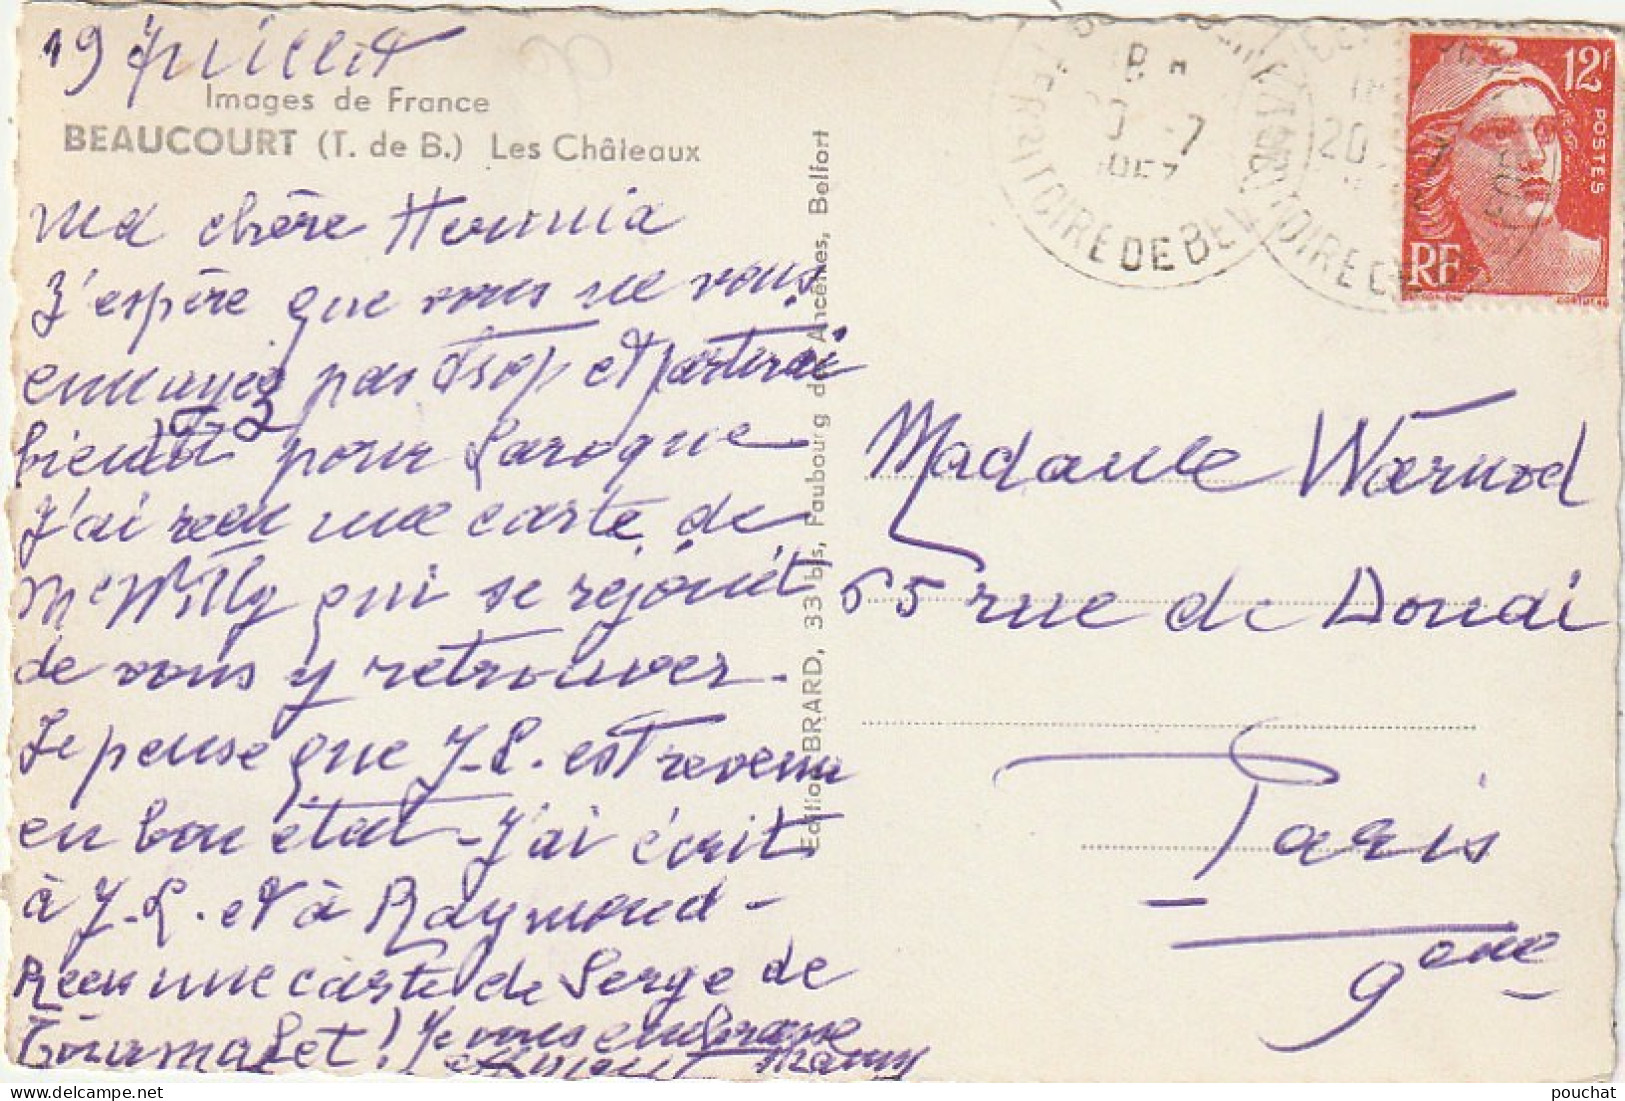 19 Juillet
Images de France
BEAUCOURT (T. de B.) Les Châteaux
Ma chère Herminia
J'espère que vous ne vous
ennuyez pas trop et partirai
bientôt pour Laroque
J'ai reçu une carte de
Me Willy qui se réjouit
de vous y retrouver.
Je pense que J-L. est revenu
en bon état - J'ai écrit
à J-L. et à Raymond -
Reçu une carte de Serge de
Tourmalet ! Je vous embrasse
Mamy
Edition BRARD, 33 bis, Faubourg d'Ancênes, Belfort
TERRITOIRE DE BEL
20 -7
12F
POSTES
RF
Madame Warnod
65 rue de Douai
Paris
9ème
pouchat